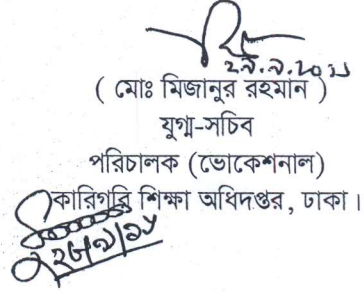 ২৯.৯.২০১১
( মোঃ মিজানুর রহমান )
যুগ্ম-সচিব
পরিচালক (ভোকেশনাল)
কারিগরি শিক্ষা অধিদপ্তর, ঢাকা।